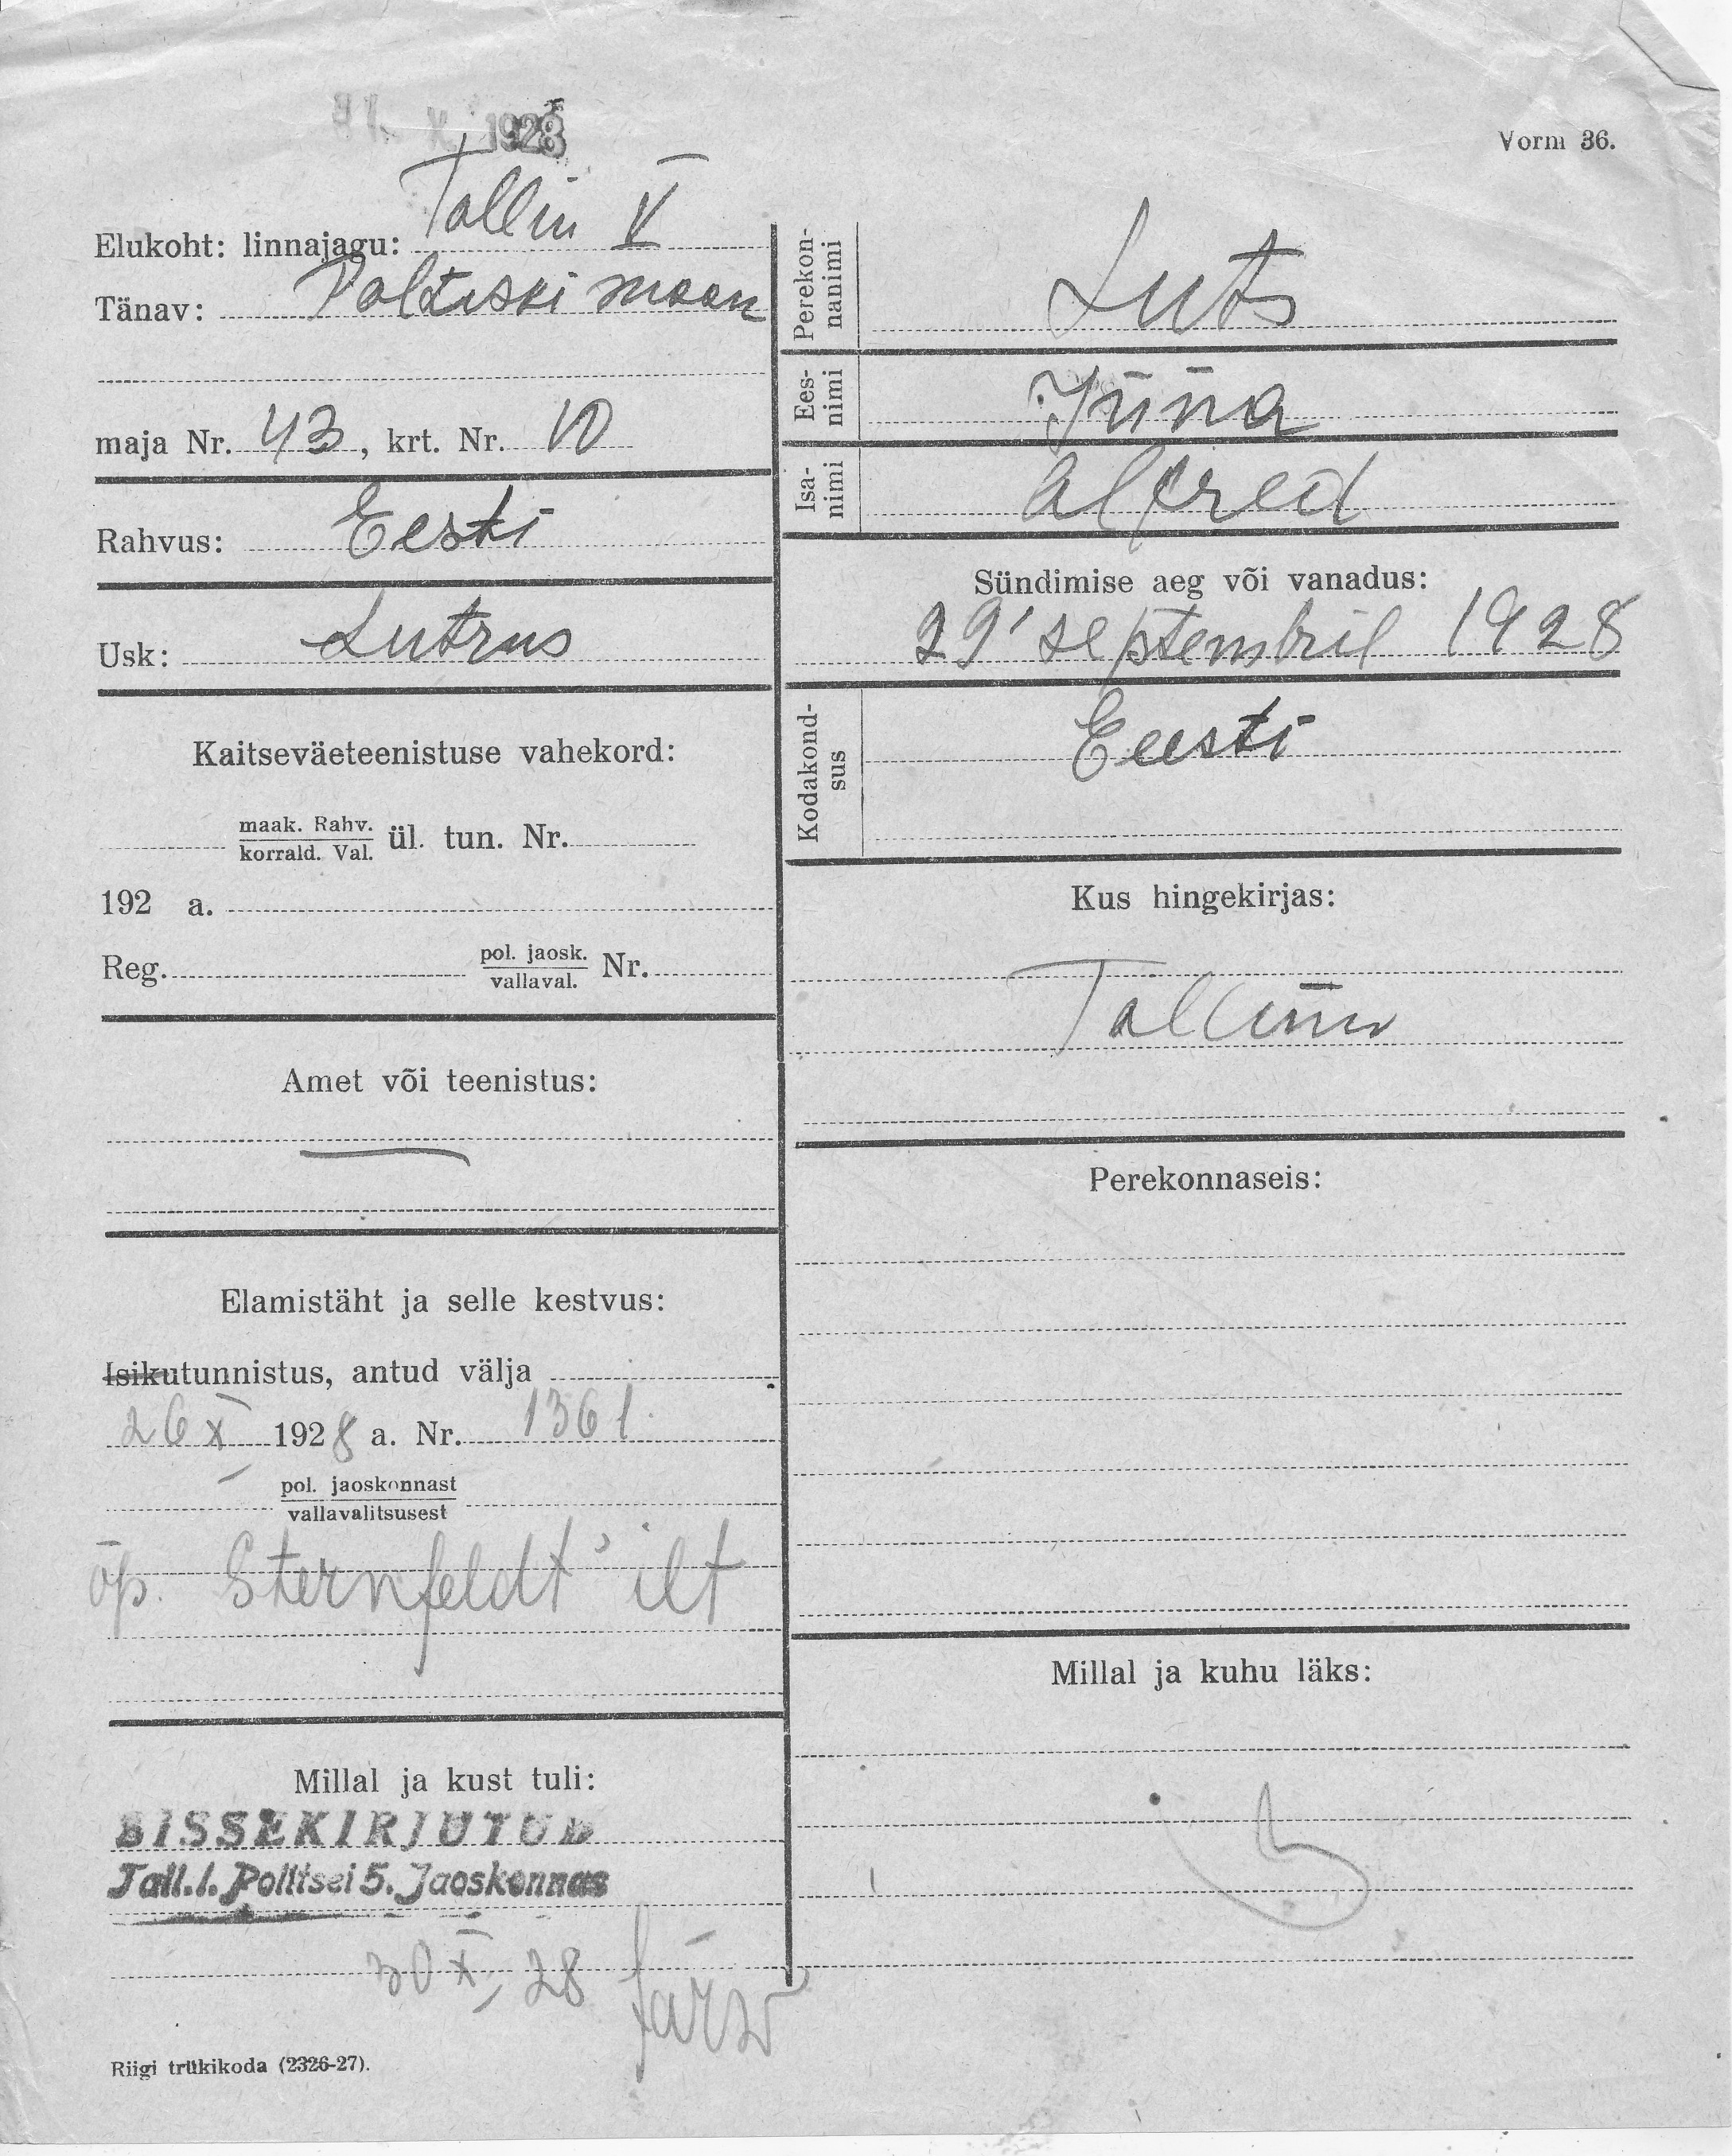 1928
Vorm 36.
Elukoht: linnajagu: Tallin V
Tänav: Paltiski maan
maja Nr. 43, krt. Nr. 10
Rahvus: Eesti
Usk: Lutrus
Kaitseväeteenistuse vahekord:
maak. Rahv.
korrald. Val. ül. tun. Nr.
192 a.
Reg. pol. jaosk.
vallaval. Nr.
Amet või teenistus:
Elamistäht ja selle kestvus:
Isikutunnistus, antud välja
26 X 1928 a. Nr. 1361
pol. jaoskonnast
vallavalitsusest
õp. Sternfeldt'ilt
Millal ja kust tuli:
SISSEKIRJUTUD
Tall. l. Politsei 5. Jaoskonnas
30 X 28
Riigi trükikoda (2326-27).
Perekon-
nanimi Luts
Ees-
nimi
Isa-
nimi Alfred
Sündimise aeg või vanadus:
29' septembril 1928
Kodakond-
sus Eesti
Kus hingekirjas:
Tallinn
Perekonnaseis:
Millal ja kuhu läks: